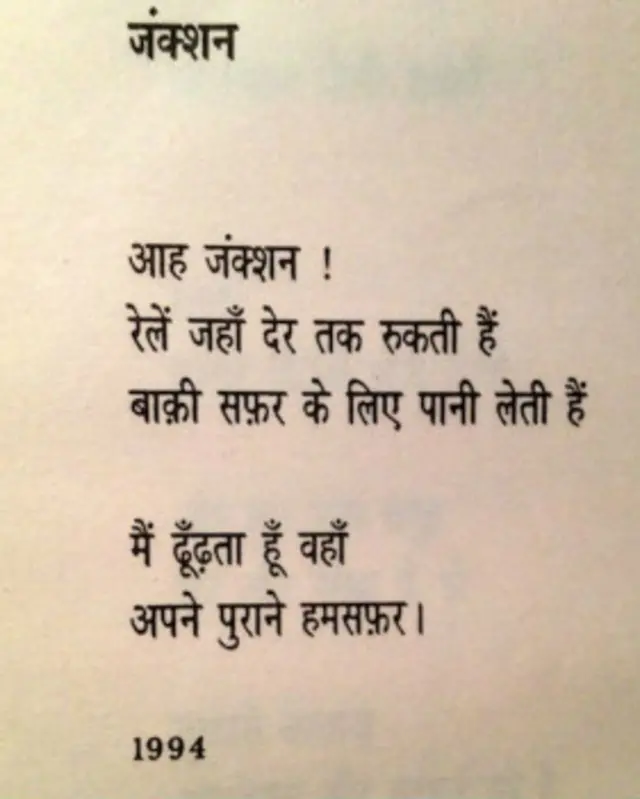 जंक्शन
आह जंक्शन !
रेलें जहाँ देर तक रुकती हैं
बाक़ी सफ़र के लिए पानी लेती हैं
मैं ढूँढ़ता हूँ वहाँ
अपने पुराने हमसफ़र।
1994